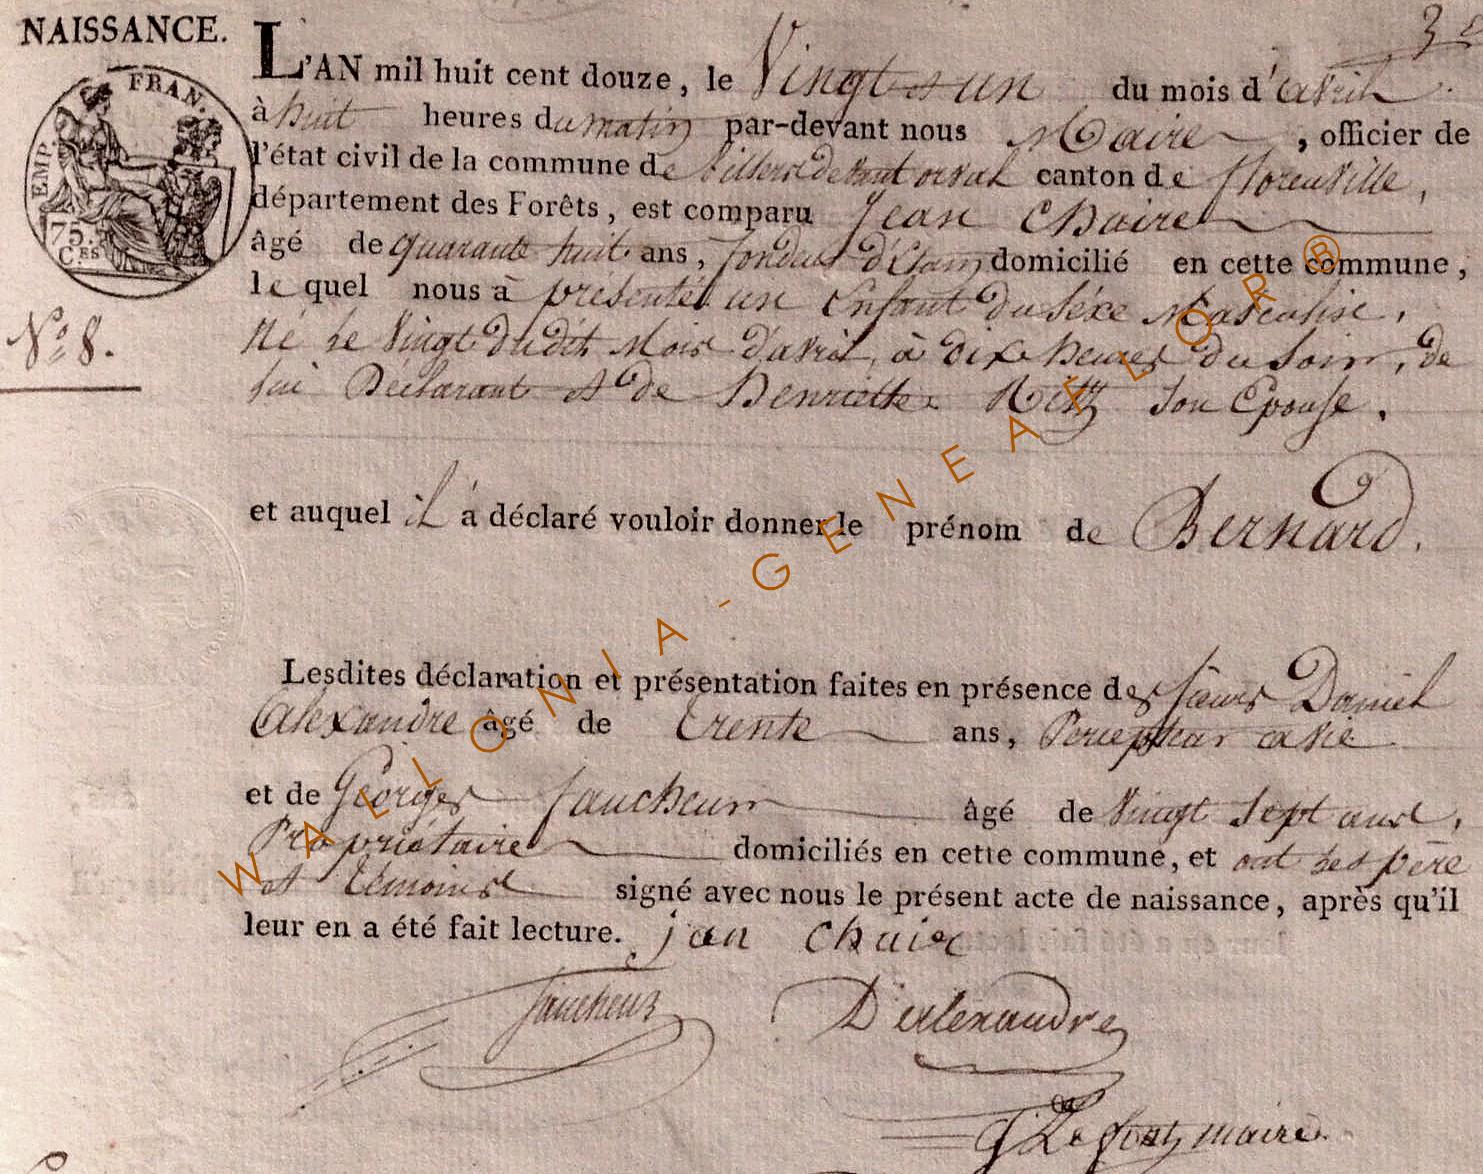 NAISSANCE.
EMP. FRAN.
75.
Ces
3
L'AN mil huit cent douze, le Vingt et un du mois d'avril.
à huit heures du matin par-devant nous Maire, officier de
l'état civil de la commune de Villers devant orval canton de florenville,
département des Forêts, est comparu Jean Chaire
âgé de quarante huit ans, fondeur d'Etain domicilié en cette commune,
le quel nous à presenté un Enfant du séxe Masculin,
N° 8.
Né le Vingt dudit Mois d'avril, à dix heures du soir, de
lui Déclarant et de Henriette son Epouse.
et auquel il a déclaré vouloir donner le prénom de Bernard.
Lesdites déclaration et présentation faites en présence des sieurs Daniel
Alexandre âgé de trente ans, Percepteur
et de Georges faucheur âgé de Vingt sept ans,
Propriétaire domiciliés en cette commune, et ont les père
et témoins signé avec nous le présent acte de naissance, après qu'il
leur en a été fait lecture. jan Chaire
faucheux D alexandre
maire.
WALLONIA-GENEAFLOR®